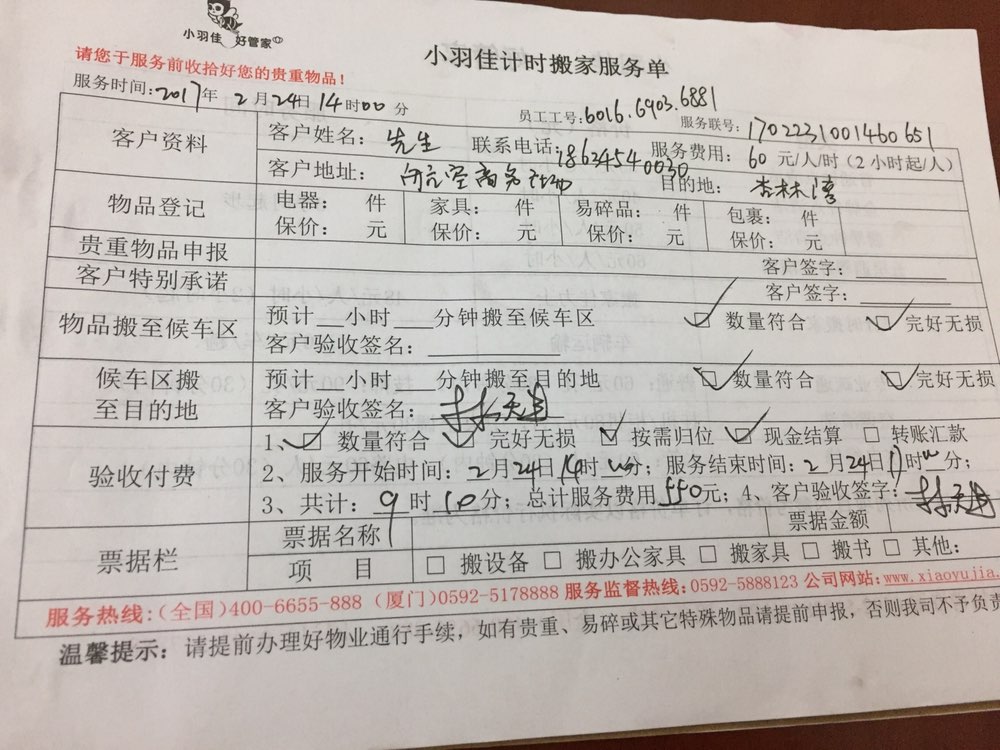 小羽佳 好管家
小羽佳计时搬家服务单
请您于服务前收拾好您的贵重物品！
服务时间：2017年 2月 24日 14时00分
员工工号：6016.6903.6881
服务联号：1702231001460651
客户资料 客户姓名：先生 联系电话：18634540030 服务费用：60 元/人/时（2 小时起/人）
客户地址： 商务 目的地：杏林湾
物品登记 电器： 件 家具： 件 易碎品： 件 包裹： 件
保价： 元 保价： 元 保价： 元 保价： 元
贵重物品申报 客户签字：
客户特别承诺 客户签字：
物品搬至候车区 预计__小时___分钟搬至候车区 数量符合 完好无损
客户验收签名：
候车区搬至目的地 预计__小时___分钟搬至目的地 数量符合 完好无损
客户验收签名：
验收付费 1、 数量符合 完好无损 按需归位 现金结算 转账汇款
2、服务开始时间：2月24日14时 分；服务结束时间：2月24日17时 分；
3、共计：9时10分；总计服务费用550元；4、客户验收签字：
票据栏 票据名称 票据金额
项 目 搬设备 搬办公家具 搬家具 搬书 其他：
服务热线：（全国）400-6655-888（厦门）0592-5178888 服务监督热线：0592-5888123 公司网站：www.xiaoyujia.
温馨提示：请提前办理好物业通行手续，如有贵重、易碎或其它特殊物品请提前申报，否则我司不予负责